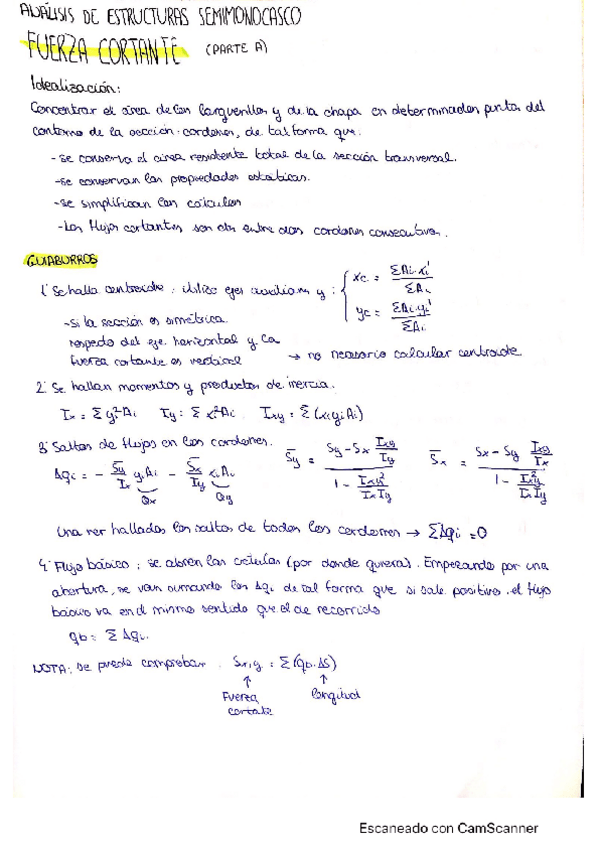 ANÁLISIS DE ESTRUCTURAS SEMIMONOCASCO
FUERZA CORTANTE (PARTE A)
Idealización:
Concentrar el área de los larguerillos y de la chapa en determinados puntos del
contorno de la sección: cordones, de tal forma que:
- se conserva el área resistente total de la sección transversal.
- se conservan las propiedades estáticas.
- se simplifican los cálculos
- Los flujos cortantes son ctes entre dos cordones consecutivos.
GUIABURROS
1º Se halla centroide: utilizo ejes auxiliares y: { xc = ΣAi·xi' / ΣAi
yc = ΣAi·yi' / ΣAi
- Si la sección es simétrica
respecto del eje horizontal y la
fuerza cortante es vertical → no necesario calcular centroide
2º Se hallan momentos y productos de inercia.
Ix = Σ yi² Ai Iy = Σ xi² Ai Ixy = Σ (xi yi Ai)
3º Saltos de flujos en los cordones.
Δqi = - S̄y/Ix yi Ai - S̄x/Iy xi Ai S̄y = (Sy - Sx Ixy/Iy) / (1 - Ixy²/(Ix Iy)) S̄x = (Sx - Sy Ixy/Ix) / (1 - Ixy²/(Ix Iy))
Qx Qy
Una vez hallados los saltos de todos los cordones → ΣΔqi = 0
4º Flujo básico: se abren las células (por donde quiera). Empezando por una
abertura, se van sumando los Δqi de tal forma que si sale positivo, el flujo
básico va en el mismo sentido que el de recorrido
qb = Σ Δqi.
NOTA: se puede comprobar: Sx,y = Σ (qb·ΔS)
↑ ↑
Fuerza longitud
cortante
Escaneado con CamScanner